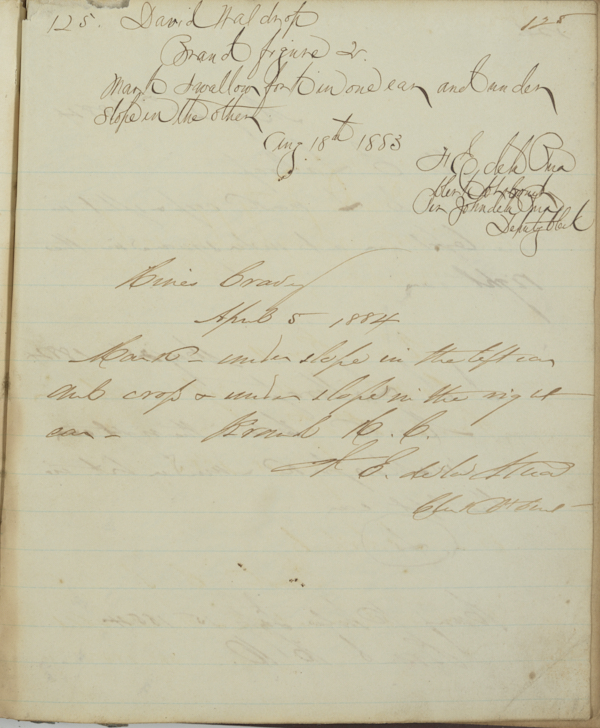 125. David Waldrop 125
Brand figure 2.
Mark Swallow fork in one ear and under
slope in the other
Aug 18th 1883
F. E. de la Rua
Clerk Ct Court
Per John de la Rua
Deputy Clerk
Hines Brady
April 5 1884
Mark - under slope in the left ear
and crop & under slope in the right
ear - Brand H. B.
F. E. de la Rua
Clerk